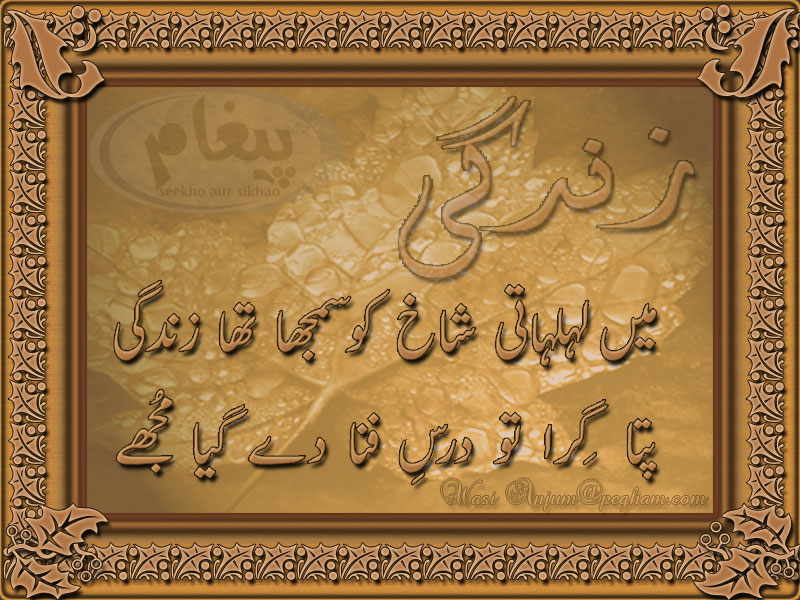 پیغام
seekho aur sikhao
زندگی
میں لہلہاتی شاخ کو سمجھا تھا زندگی
پتا گِرا تو درسِ فنا دے گیا مُجھے
Wasi Anjum@pegham.com